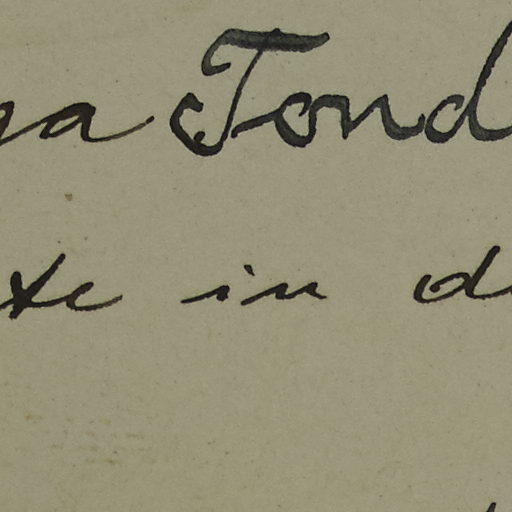 ga Tond
te in d